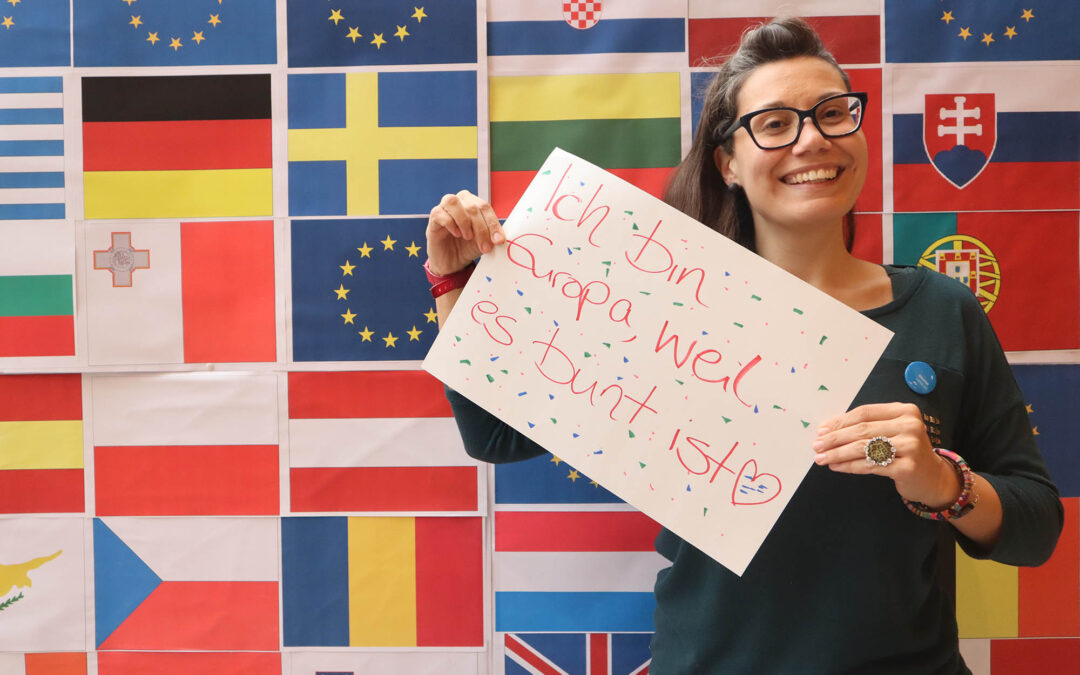 Ich bin
Europa, weil
es bunt ist